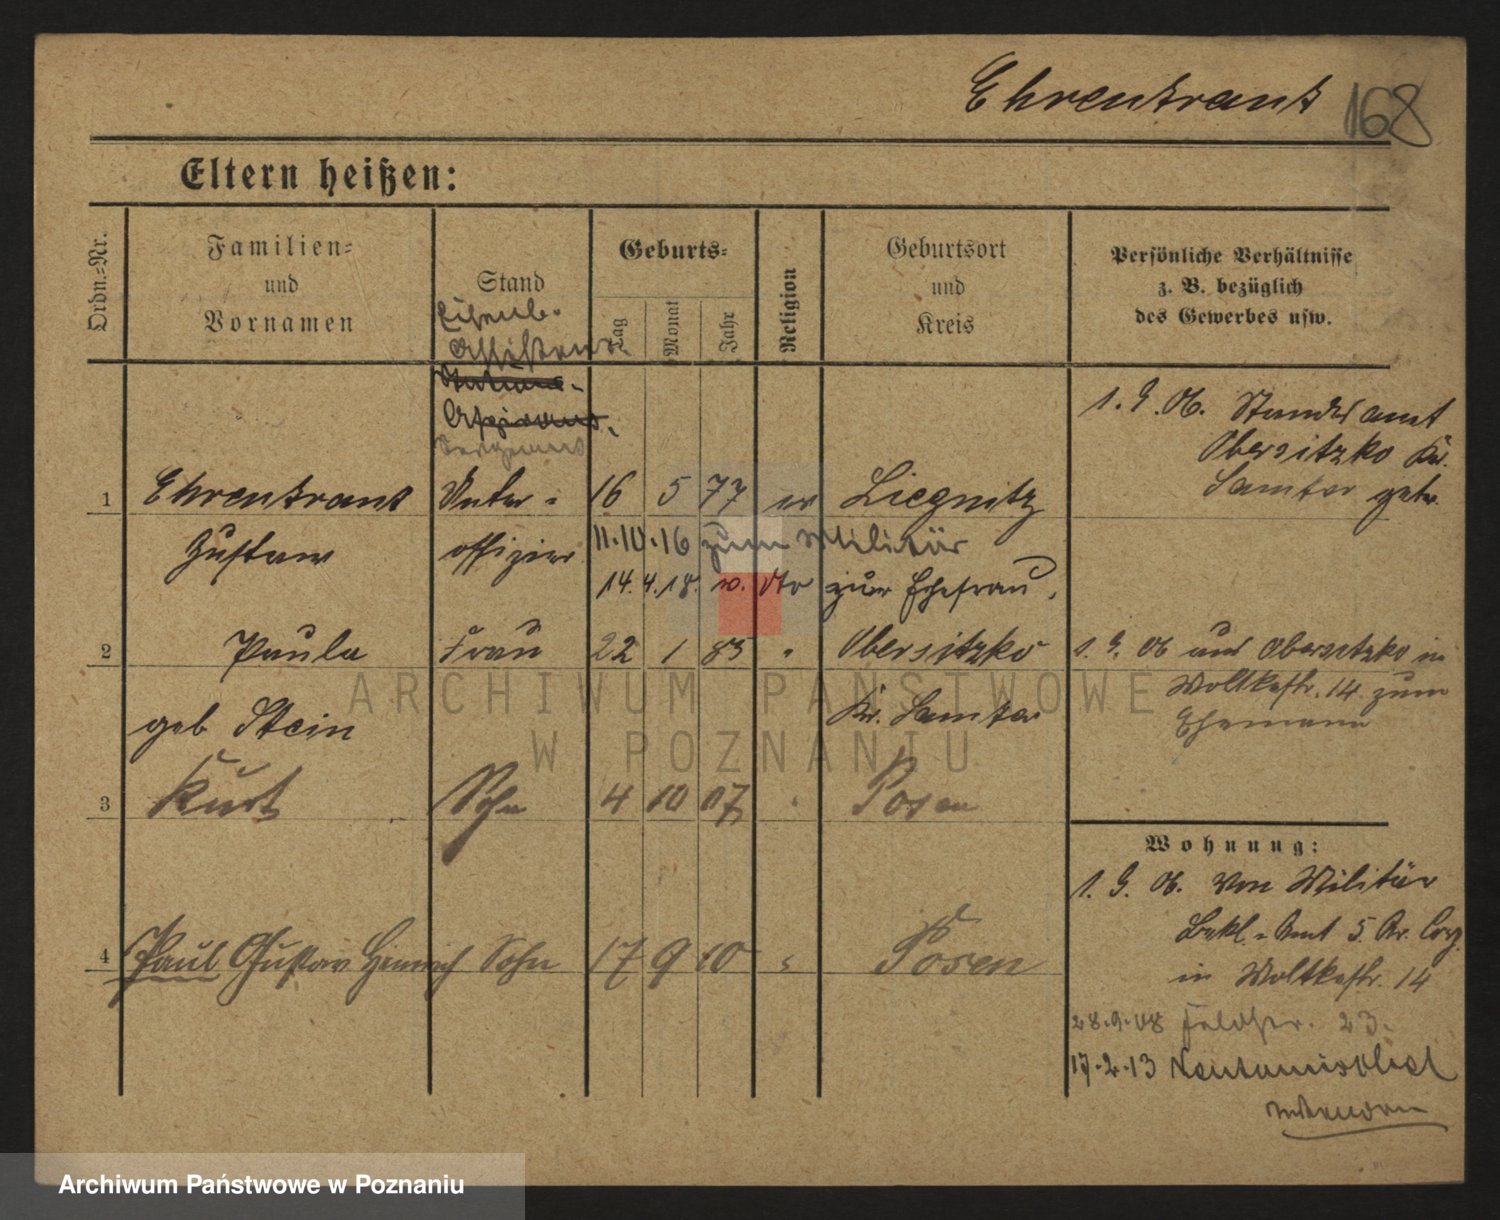 Ehrentraut 168
Eltern heißen:
Ordn.-Nr.
Familien-
und
Vornamen
Stand
Geburts-
Tag
Monat
Jahr
Religion
Geburtsort
und
Kreis
Persönliche Verhältnisse
z. B. bezüglich
des Gewerbes usw.
Eisenb.-
Assistent.
Aspirant.
Sergeant
1 Ehrentraut Unter- 16 5 77 ev Liegnitz
Gustav offizier
11.10.16 zum Militär
14.4.18. v. dto zur Ehefrau.
1. G. Ob. Standesamt
Obersitzko Kr.
Samter getr.
2 Paula Frau 22 1 83 " Obersitzko
geb Stein Kr. Samter
1. G. Ob aus Obersitzko in
Moltkestr. 14 zum
Ehemann
3 Kurt Sohn 4 10 07 " Posen
4 Paul Gustav Heinrich Sohn 17 9 10 " Posen
Wohnung:
1. G. Ob. von Militär
Bekl.-Amt 5. Ar. Corp.
in Moltkestr. 14
28.9.08 Feldstr. 23.
17.2.13 Neutomischel
ARCHIWUM PAŃSTWOWE
W POZNANIU
Archiwum Państwowe w Poznaniu